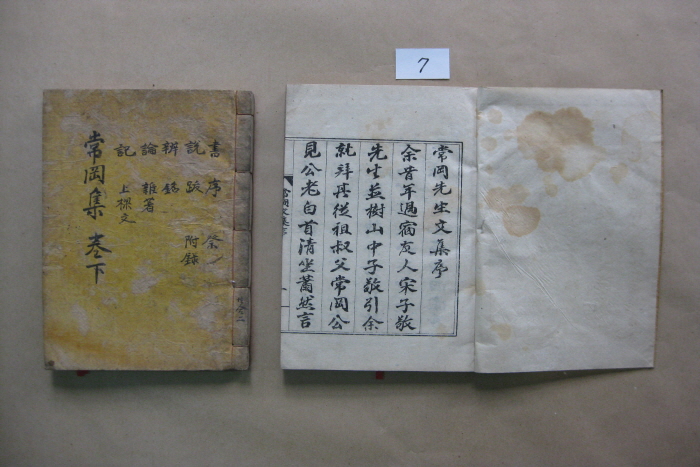 7
常岡集 卷下
書 序 祭
說 跋 附錄
辨 銘
論 雜著
記 上樑文
常岡先生文集序
余昔年過宿友人宋子敬
先生益樹山中子敬引余
就拜再從祖叔父常岡公
見公老白首清坐蕭然言